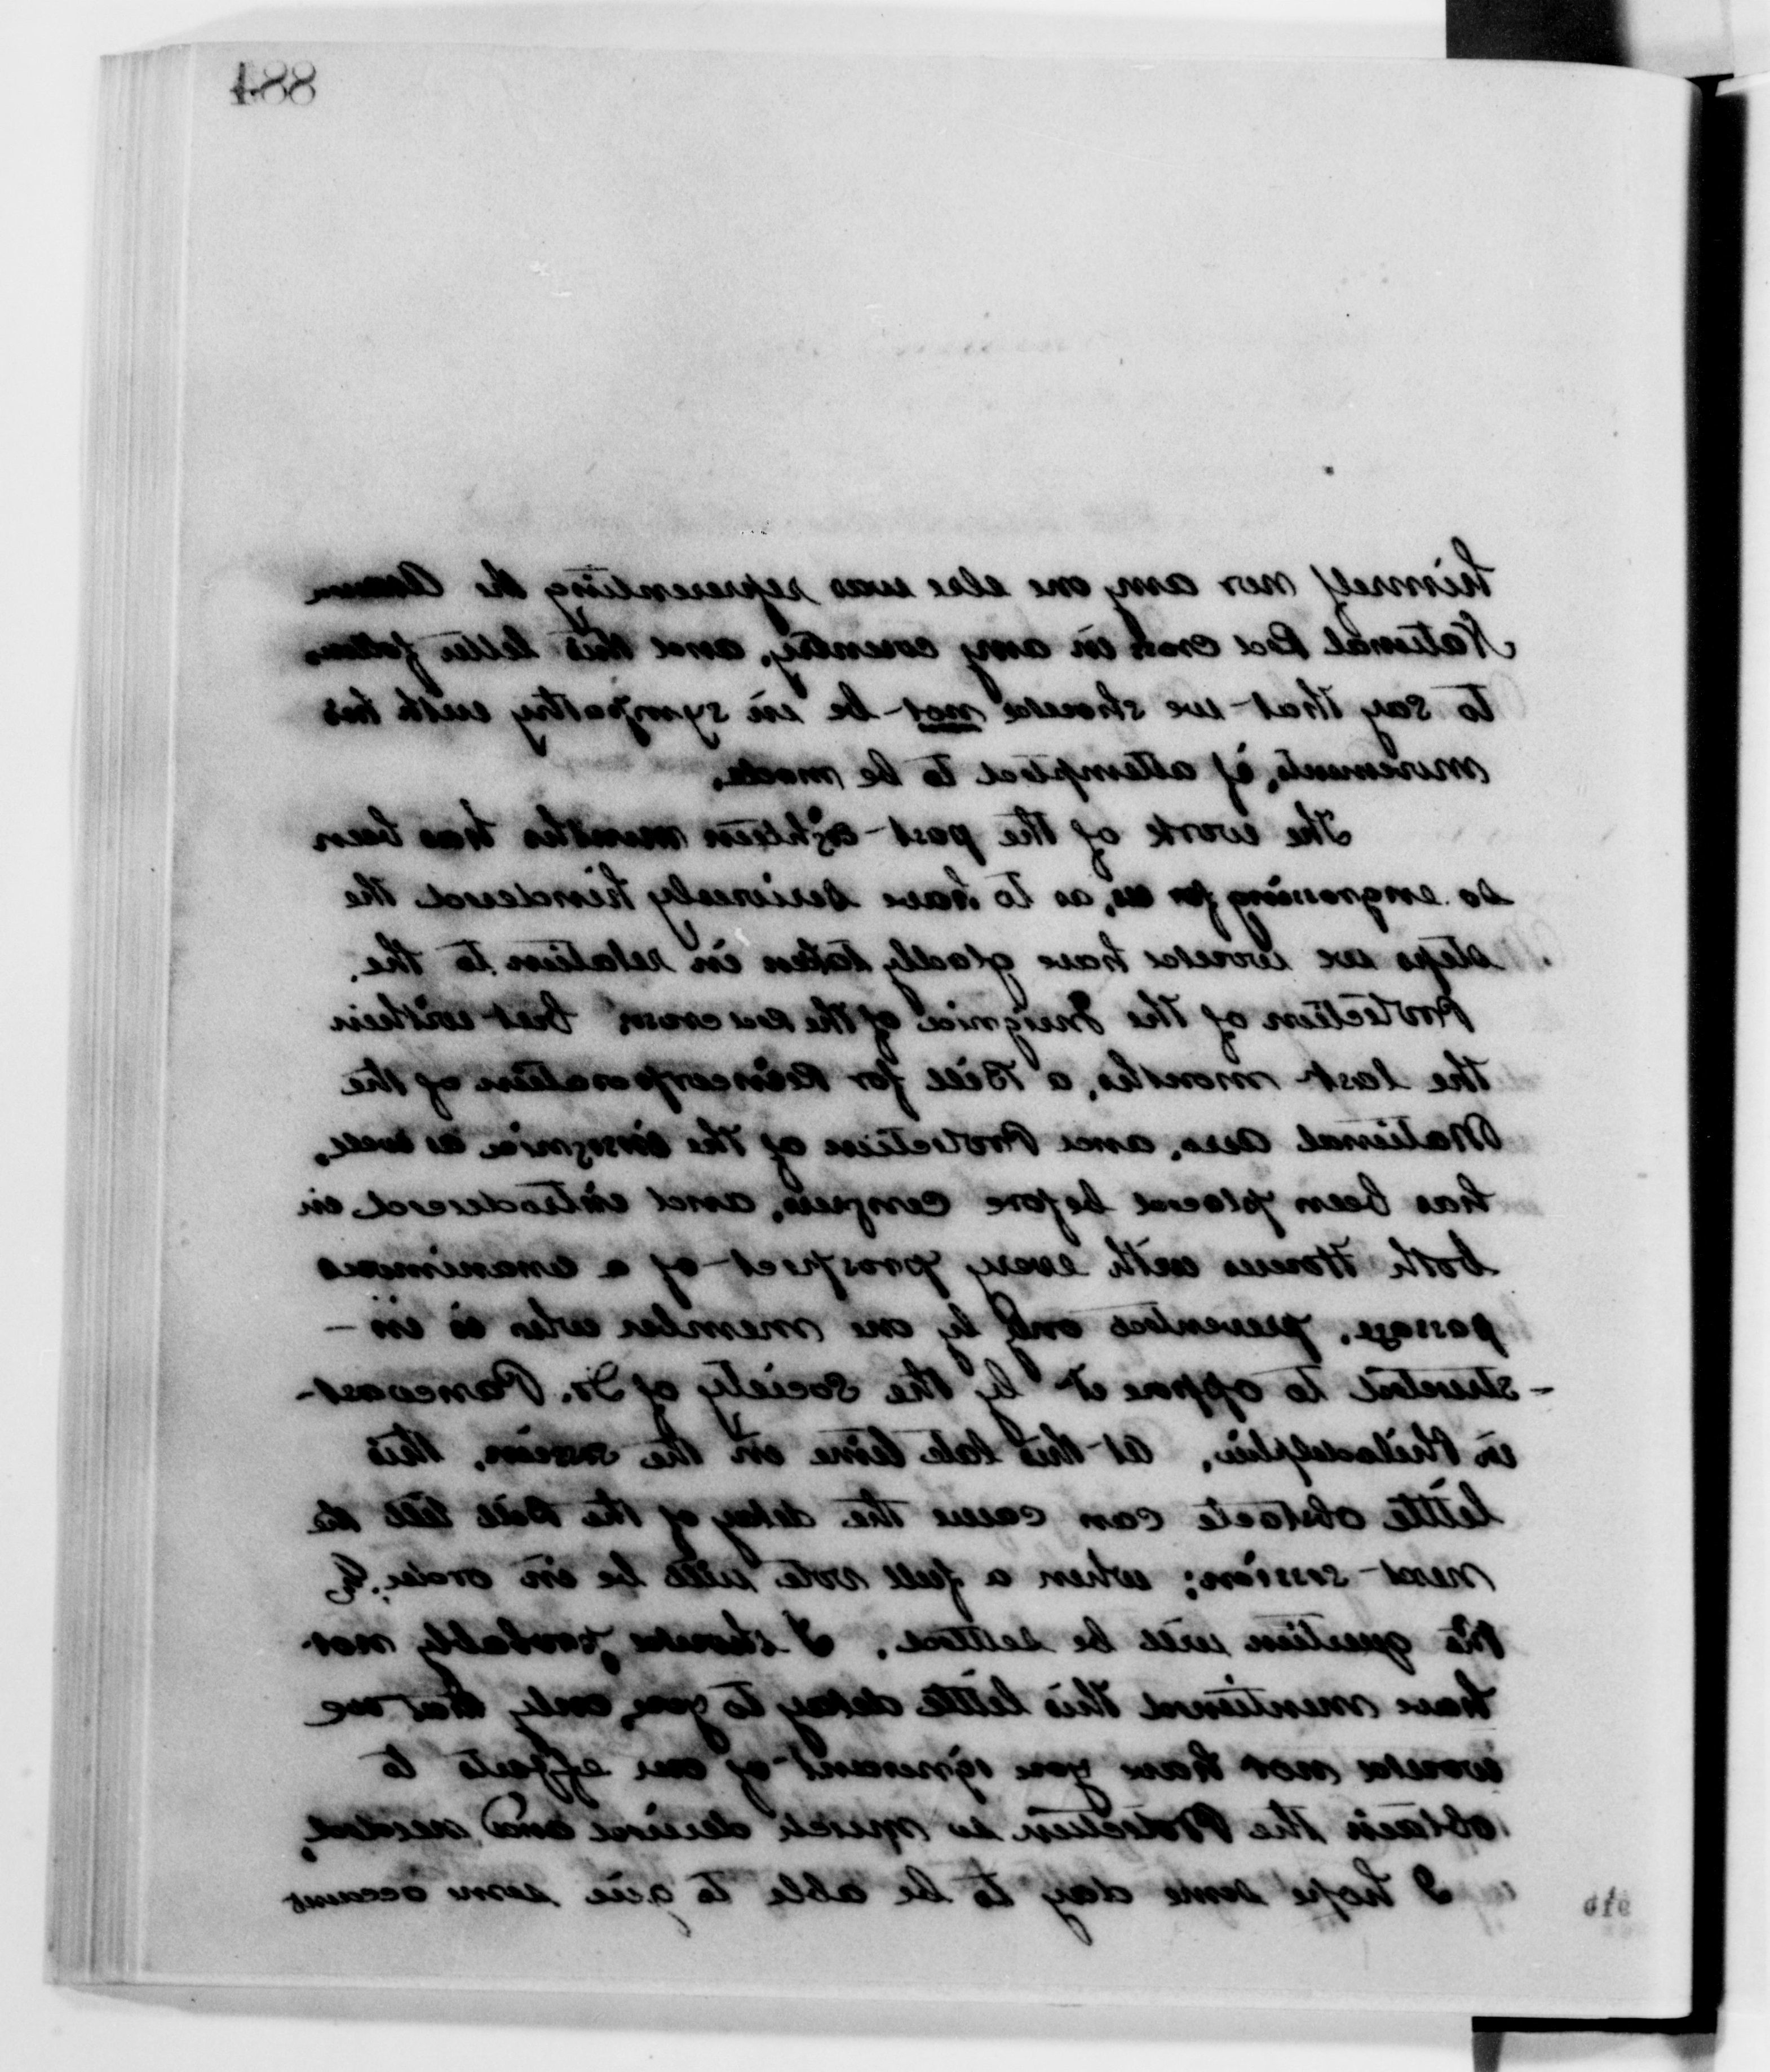 488
himself nor any one else was representing the American
National Red Cross in any country, and this letter follows
to say that we should not be in sympathy with his
movements, if attempted to be made.
The work of the past eighteen months has been
so engrossing for us, as to have seriously hindered the
steps we would have gladly taken in relation to the
Protection of the Insignia of the Red Cross but within
the last months, a Bill for Reincorporation of the
National Ass, and Protection of the insignia as well,
has been placed before Congress, and introduced in
both Houses with every prospect of a unanimous
passage, prevented only by one member who is in-
-structed to oppose it by the Society of Dr. Pancoast
in Philadelphia. At this late time in the session, this
little obstacle can cause the delay of the Bill till the
next session; when a full vote will be in order, &
the question will be settled. I should probably not
have mentioned this little delay to you, only that we
would not have you ignorant of our efforts to
obtain the Protection so much desired and needed.
I hope some day to be able to give some account